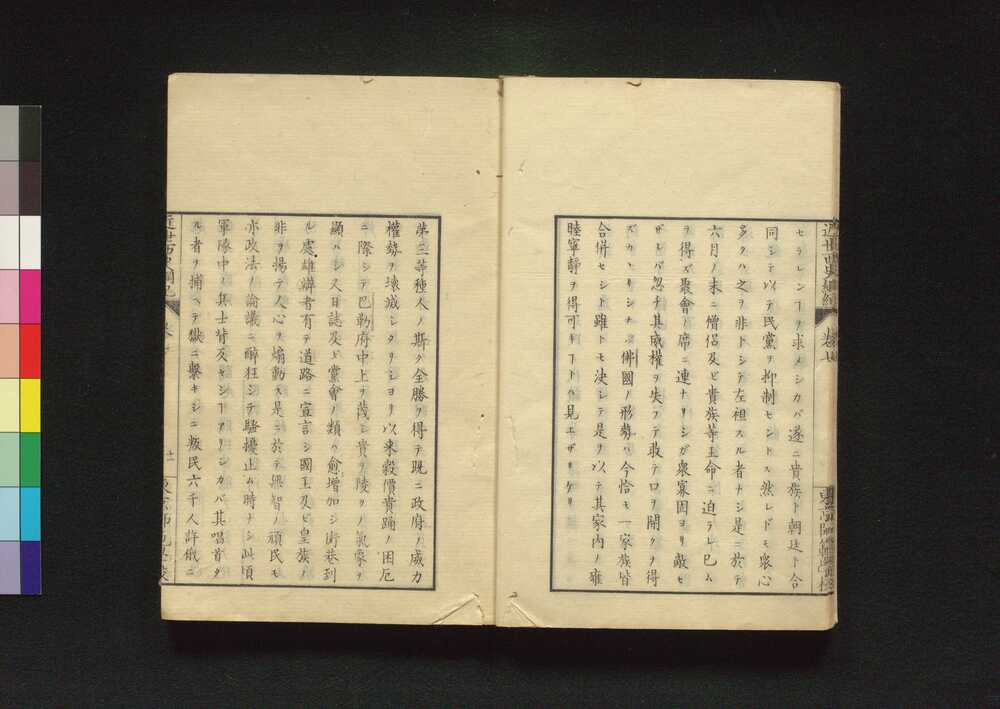 セラレンヿヲ求メシカバ遂ニ貴族ト朝廷ト合
同シテ以テ民黨ヲ抑制セントス然レドモ衆心
多クハ之ヲ非トシテ左袒スル者ナシ是ニ於テ
六月ノ末ニ僧侶及ビ貴族等王命ニ迫ラレ已ム
ヲ得ズ衆會ノ席ニ連ナリシガ衆寡固ヨリ敵セ
ザレバ忽チ其威權ヲ失フテ敢テ口ヲ開クヲ得
ズ
佛國ノ形勢ハ今恰モ一家族皆
合併セシト雖トモ決シテ是ヲ以テ其家内ノ雍
睦寧靜ヲ得可キヿトハ見エザリケリ
第三等種人ノ斯ク全勝ヲ得テ既ニ政府ノ威力
權勢ヲ壊滅シタリシヨリ以来穀價貴踊ノ困厄
ニ際シテ巴勒府中上ヲ蔑シ貴ヲ陵クノ氣象ヲ
顯ハシ又日誌及ビ黨會ノ類愈増加シ街巷到
ル處雄辨者有テ道路ニ宣言シ國王及ビ皇族ノ
非ヲ揚テ人心ヲ煽動ス是ニ於テ無智ノ頑民モ
亦政法ノ論議ニ醉狂シテ騒擾止ム時ナシ此頃
軍隊中ノ兵士背反セシヿアリシカバ其唱首タ
ル者ヲ捕ヘテ獄ニ繋キシニ叛民六千人許俄ニ